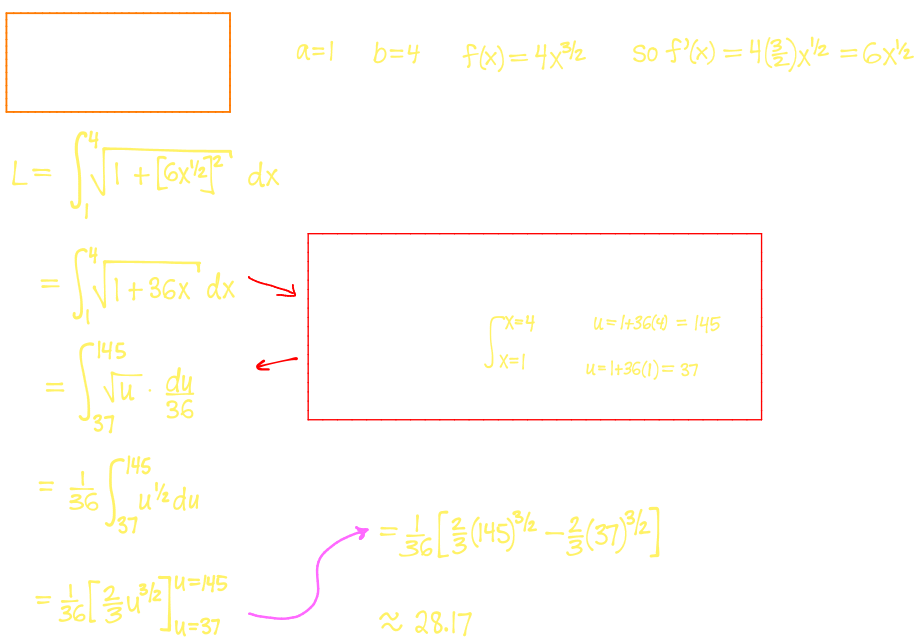 a=1 b=4 f(x) = 4x^{3/2} so f'(x) = 4(3/2)x^{1/2} = 6x^{1/2}
L = ∫_1^4 √(1 + [6x^{1/2}]^2) dx
= ∫_1^4 √(1 + 36x) dx
∫_{x=1}^{x=4} u = 1+36(4) = 145
u = 1+36(1) = 37
= ∫_{37}^{145} √u · du/36
= 1/36 ∫_{37}^{145} u^{1/2} du
= 1/36 [2/3 u^{3/2}]_{u=37}^{u=145}
= 1/36 [2/3 (145)^{3/2} − 2/3 (37)^{3/2}]
≈ 28.17